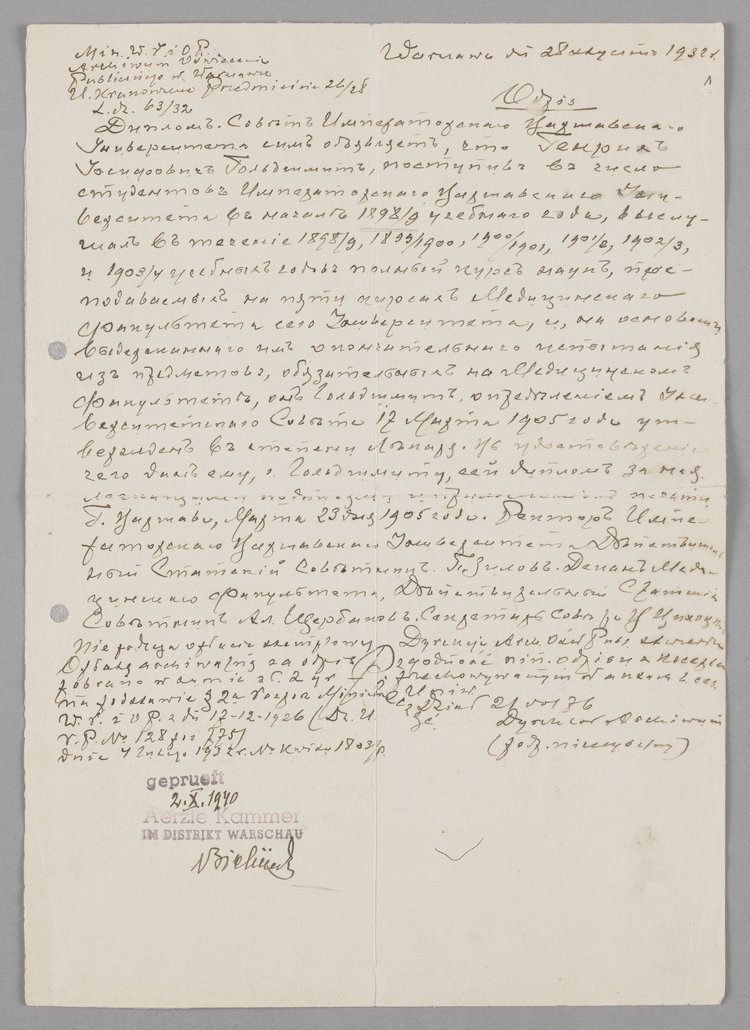 Min. W. R. i O. P.
Archiwum Oświecenia
Publicznego w Warszawie
Ul. Krakowskie Przedmieście 26/28
L. dz. 63/32
Warszawa dn 28 1932 r.
Odpis
Дипломъ. Совѣтъ Императорскаго Варшавскаго
Университета симъ объявляетъ, что Генрикъ
Іосифовичъ Гольдшмитъ, поступивъ въ число
студентовъ Императорскаго Варшавскаго Уни-
верситета въ началѣ 1898/9 учебнаго года, выслу-
шалъ въ теченіе 1898/9, 1899/1900, 1900/1901, 1901/2, 1902/3,
и 1903/4 учебныхъ годовъ полный курсъ наукъ, пре-
подаваемыхъ на пяти курсахъ Медицинскаго
Факультета сего Университета, и, на основаніи
выдержаннаго имъ окончательнаго испытанія
изъ предметовъ, обязательныхъ на Медицинскомъ
Факультетѣ, онъ Гольдшмитъ, опредѣленіемъ Уни-
верситетскаго Совѣта 17 Марта 1905 года ут-
вержденъ въ степени Лѣкаря. Въ удостовѣреніе
чего данъ ему, г. Гольдшмиту, сей дипломъ за над-
лежащими подписями и приложеніемъ печати
Г. Варшава, Марта 23 дня 1905 года. Ректоръ Импе
раторскаго Варшавскаго Университета Дѣйствитель
ный Статскій Совѣтникъ П. Зиловъ. Деканъ Меди-
цинскаго Факультета, Дѣйствительный Статскій
Совѣтникъ Ал. Щербаковъ. Секретарь Совѣта
Nie podlega opłacie stemplowej
Opłatę archiwalną za odpis
pobrano w kwocie zł. 2 gr
na podstawie § 2a
W. R. i O. P. z dn 17-12-1926 (Dz. U
R. P. No 128 poz 775)
dnia 4 lutego 1932 r. No Kwitu
Dyrekcja Arch. Ośw. Publ. stwierdza
zgodność nin. odpisu z
przechowywanym w
Uniw.
Dyrektor Archiwum
(podp. nieczytelny)
geprueft
2. X. 1940
Aerzte Kammer
IM DISTRIKT WARSCHAU